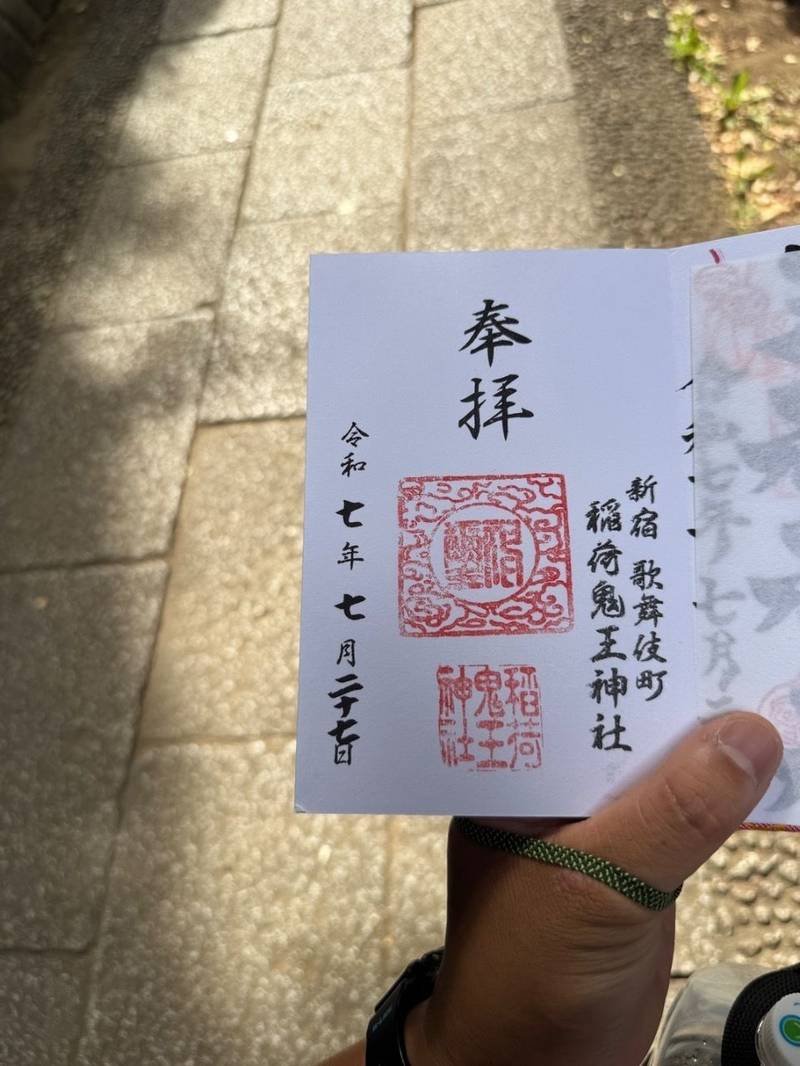 奉拝
新宿 歌舞伎町
稲荷鬼王神社
稲荷
鬼王
神社
令和七年七月二十七日
七月